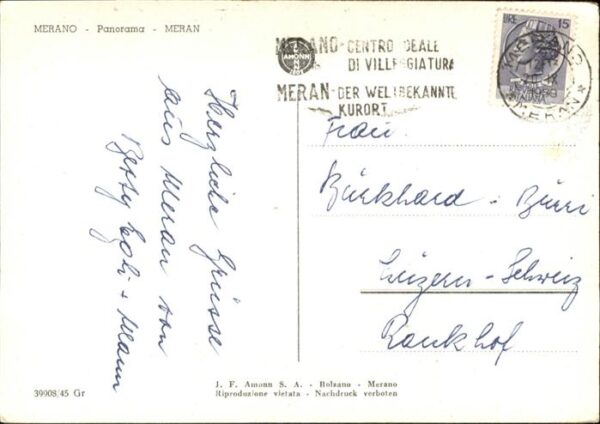 MERANO - Panorama - MERAN
LIRE 15
AMONN
MERANO - CENTRO IDEALE
DI VILLEGGIATURA
MERAN - DER WELTBEKANNTE
KURORT
MERANO
MERAN
Herzliche Grüsse
aus Meran von
Betty Egli + Mann
Frau
Burkhard - Büri
Luzern - Schweiz
39908/45 Gr
J. F. Amonn S. A. - Bolzano - Merano
Riproduzione vietata - Nachdruck verboten